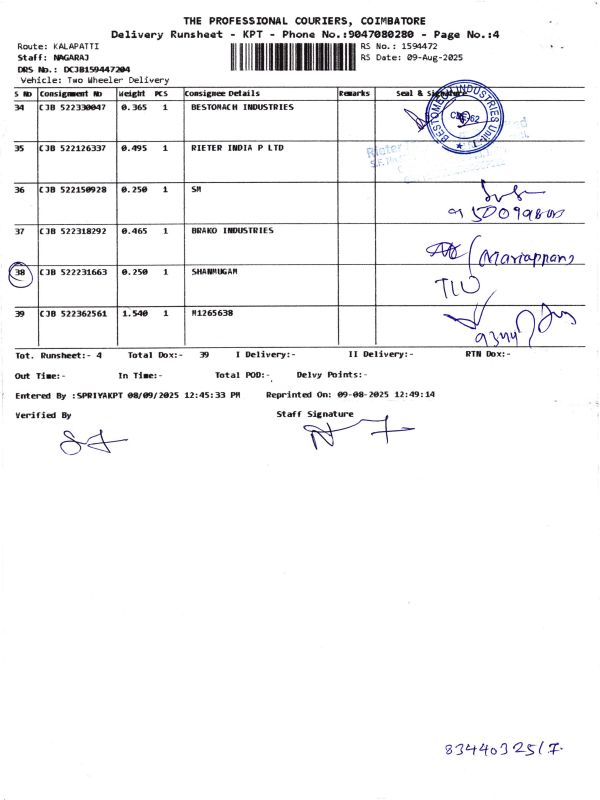 THE PROFESSIONAL COURIERS, COIMBATORE
Delivery Runsheet - KPT - Phone No.:9047080280 - Page No.:4
Route: KALAPATTI RS No.: 1594472
Staff: NAGARAJ RS Date: 09-Aug-2025
DRS No.: DCJB159447204
Vehicle: Two Wheeler Delivery
S No Consignment No Weight PCS Consignee Details Remarks Seal &
34 CJB 522330047 0.365 1 BESTOMACH INDUSTRIES
BESTOMECH INDUSTRIES Unit-1
35 CJB 522126337 0.495 1 RIETER INDIA P LTD
Rieter
36 CJB 522150928 0.250 1 SM
37 CJB 522318292 0.465 1 BRAKO INDUSTRIES
Mariappan
38 CJB 522231663 0.250 1 SHANMUGAM
39 CJB 522362561 1.540 1 M1265638
Tot. Runsheet:- 4 Total Dox:- 39 I Delivery:- II Delivery:- RTN Dox:-
Out Time:- In Time:- Total POD:- Delvy Points:-
Entered By :SPRIYAKPT 08/09/2025 12:45:33 PM Reprinted On: 09-08-2025 12:49:14
Verified By Staff Signature
8344032517